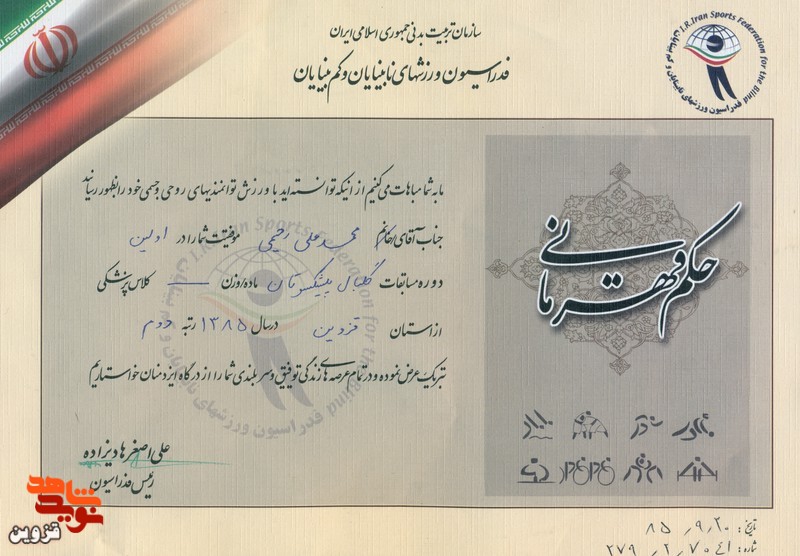 سازمان تربیت بدنی جمهوری اسلامی ایران
فدراسیون ورزشهای نابینایان و کم بینایان
I.R.Iran Sports Federation for the Blind
فدراسیون ورزشهای نابینایان و کم بینایان
ما به شما مباهات می‌کنیم از اینکه توانسته‌اید با ورزش توانمندیهای روحی و جسمی خود را بظهور رسانید
جناب آقای/خانم محمد علی رحیمی موفقیت شما را در اولین
دوره مسابقات گلبال پیشکسوتان ماده/وزن — کلاس پزشکی
از استان قزوین در سال ۱۳۸۵ رتبه دوم
تبریک عرض نموده و در تمام عرصه های زندگی توفیق و سربلندی شما را از درگاه ایزد منان خواستاریم
حکم قهرمانی
علی اصغر هادیزاده
رئیس فدراسیون
نوید شاهد
قزوین
تاریخ: ۸۵٫۹٫۲۰
شماره: ۲۷۹٫۲٫۷۰۴۱